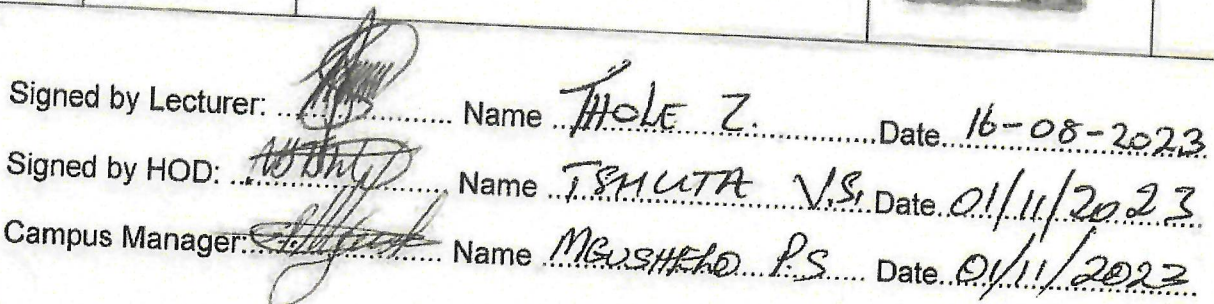 Signed by Lecturer: Name THOLE Z. Date 16-08-2023
Signed by HOD: Name TSHUTA V.S. Date 01/11/2023
Campus Manager: Name P.S Date 01/11/2023